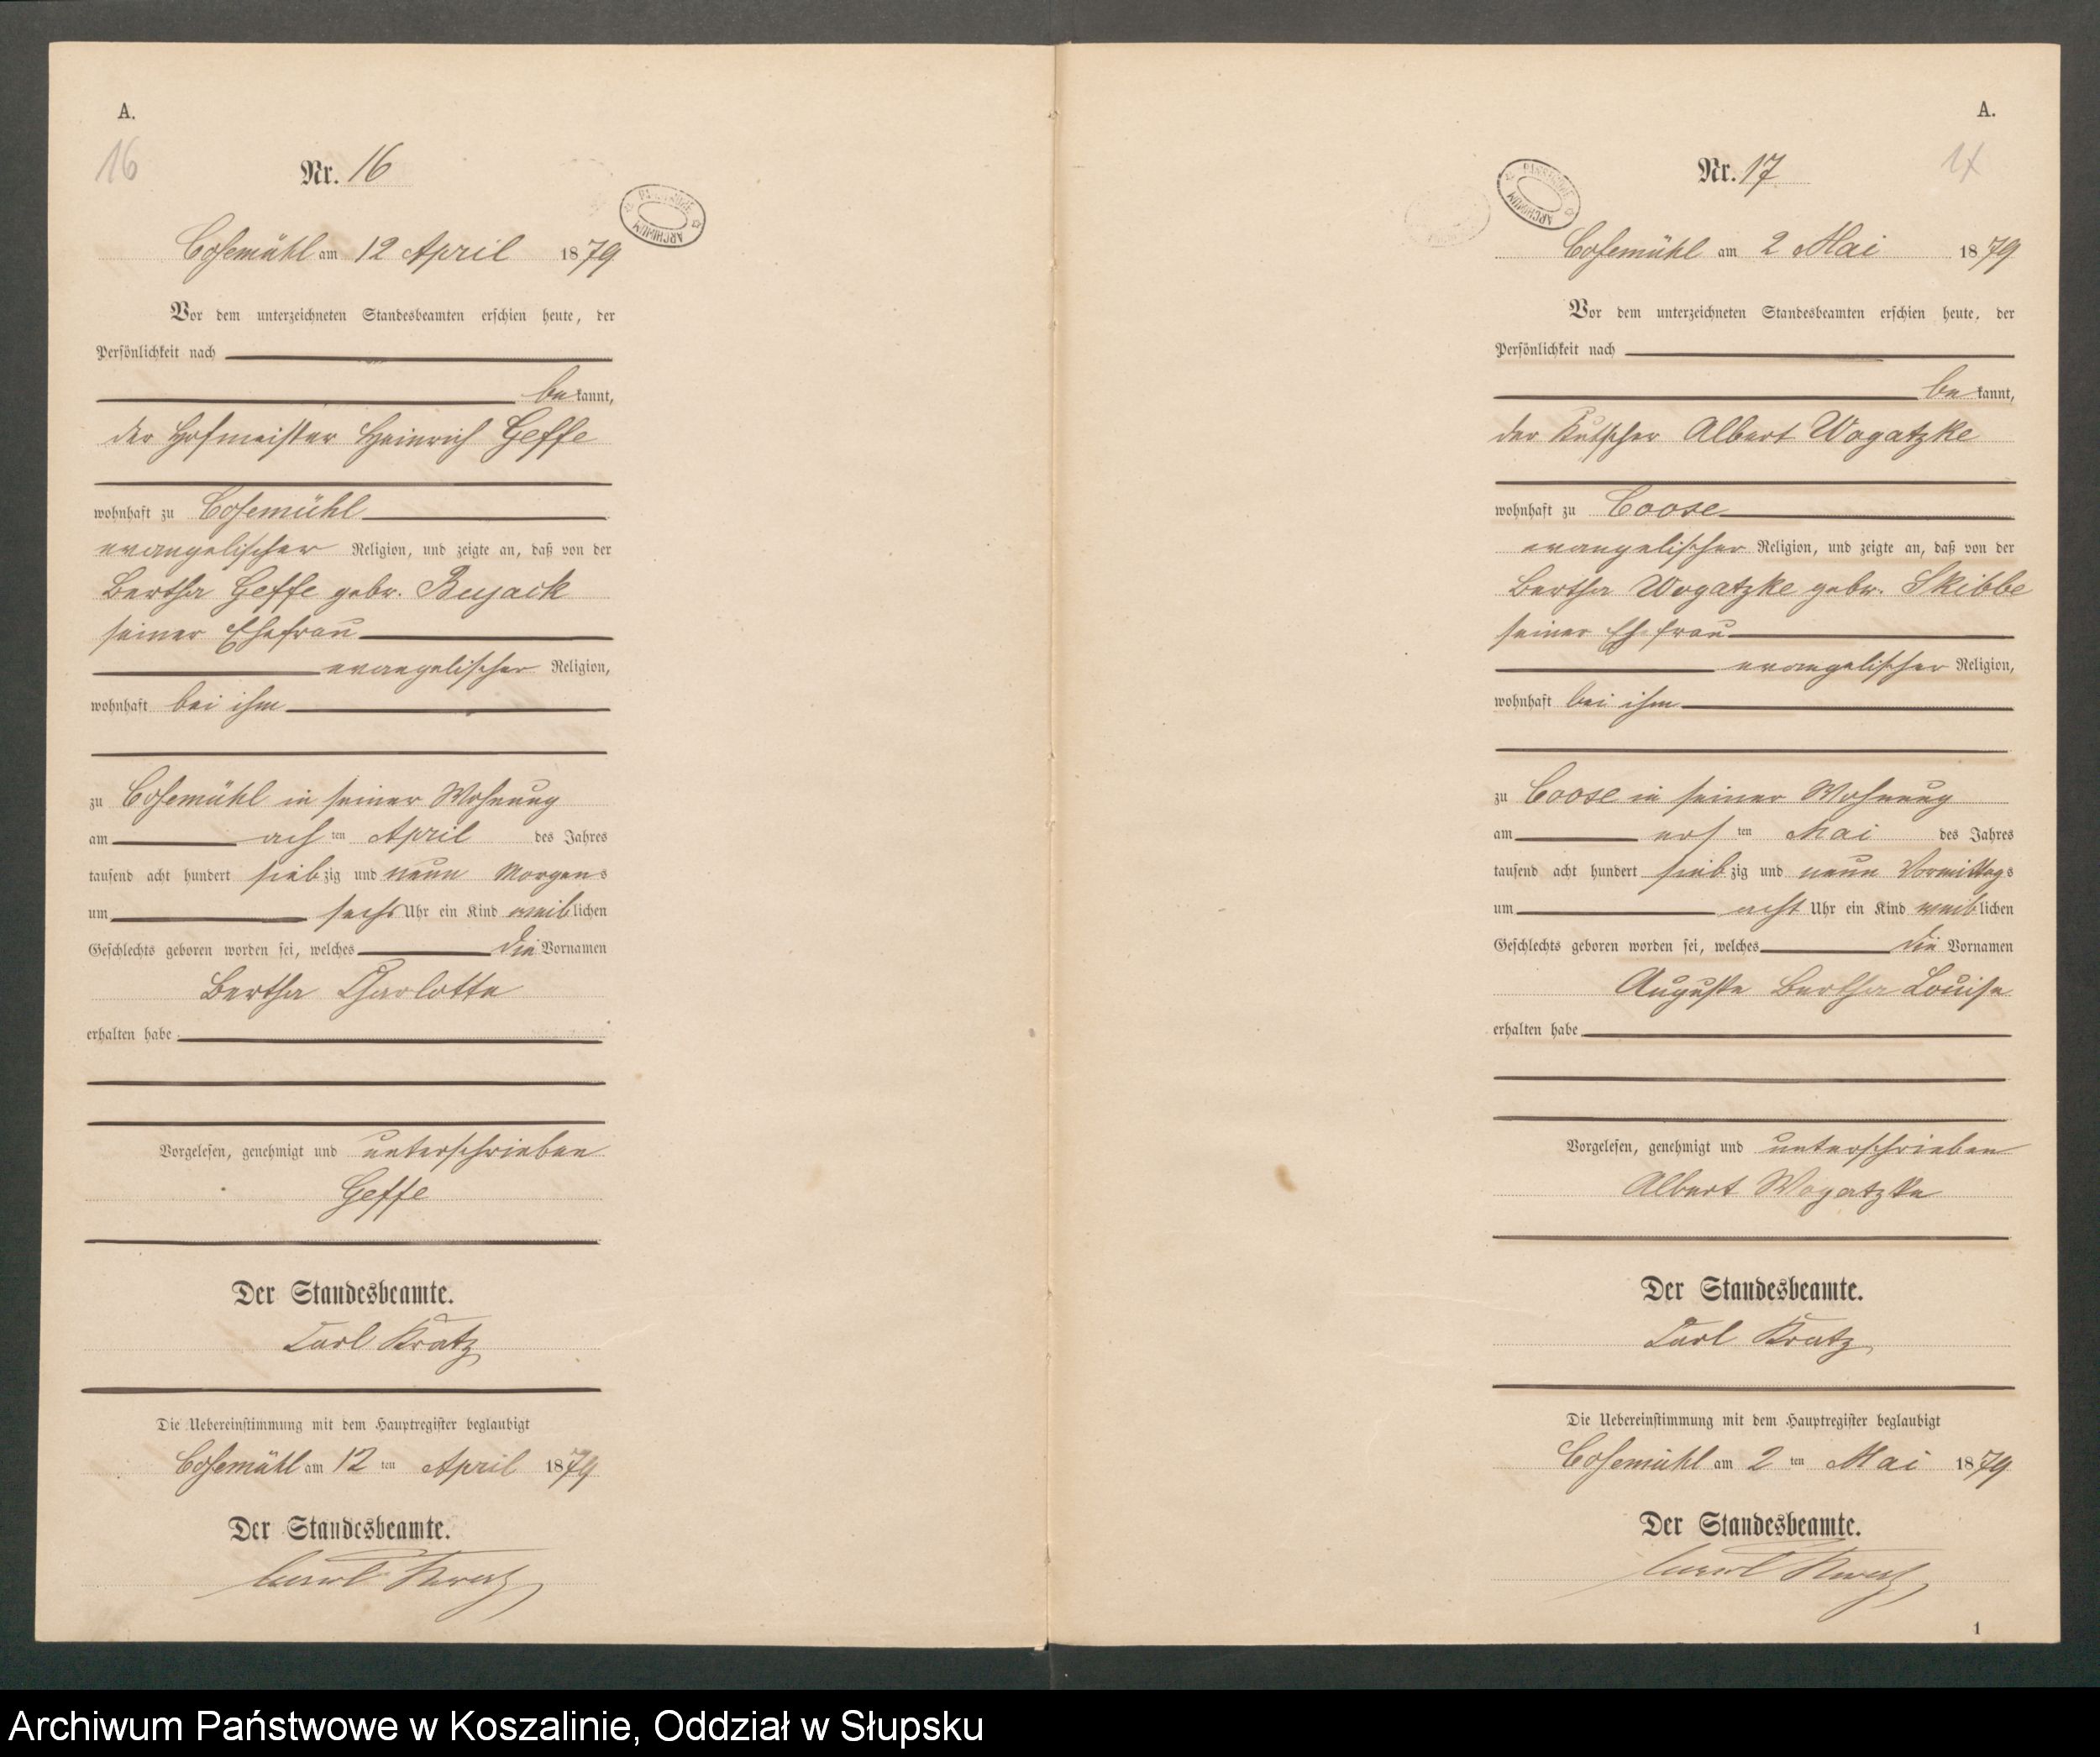 A.
16
Nr. 16
ARCHIWUM PAŃSTWOWE
Cosemühl am 12 April 1879
Vor dem unterzeichneten Standesbeamten erschien heute, der
Persönlichkeit nach
bekannt,
der Hofmeister Heinrich Geffe
wohnhaft zu Cosemühl
evangelischer Religion, und zeigte an, daß von der
Bertha Geffe gebr. Bujack
seiner Ehefrau
evangelischer Religion,
wohnhaft bei ihm
zu Cosemühl in seiner Wohnung
am achten April des Jahres
tausend acht hundert siebzig und neun Morgens
um sechs Uhr ein Kind weiblichen
Geschlechts geboren worden sei, welches die Vornamen
Bertha Charlotte
erhalten habe
Vorgelesen, genehmigt und unterschrieben
Geffe
Der Standesbeamte.
Carl Kratz
Die Uebereinstimmung mit dem Hauptregister beglaubigt
Cosemühl am 12 ten April 1879
Der Standesbeamte.
Carl Kratz
A.
17
Nr. 17
ARCHIWUM PAŃSTWOWE
Cosemühl am 2 Mai 1879
Vor dem unterzeichneten Standesbeamten erschien heute, der
Persönlichkeit nach
bekannt,
der Kutscher Albert Wogatzke
wohnhaft zu Coose
evangelischer Religion, und zeigte an, daß von der
Bertha Wogatzke gebr. Skibbe
seiner Ehefrau
evangelischer Religion,
wohnhaft bei ihm
zu Coose in seiner Wohnung
am ersten Mai des Jahres
tausend acht hundert siebzig und neun Vormittags
um acht Uhr ein Kind weiblichen
Geschlechts geboren worden sei, welches die Vornamen
Auguste Bertha Louise
erhalten habe
Vorgelesen, genehmigt und unterschrieben
Albert Wogatzke
Der Standesbeamte.
Carl Kratz
Die Uebereinstimmung mit dem Hauptregister beglaubigt
Cosemühl am 2 ten Mai 1879
Der Standesbeamte.
Carl Kratz
1
Archiwum Państwowe w Koszalinie, Oddział w Słupsku